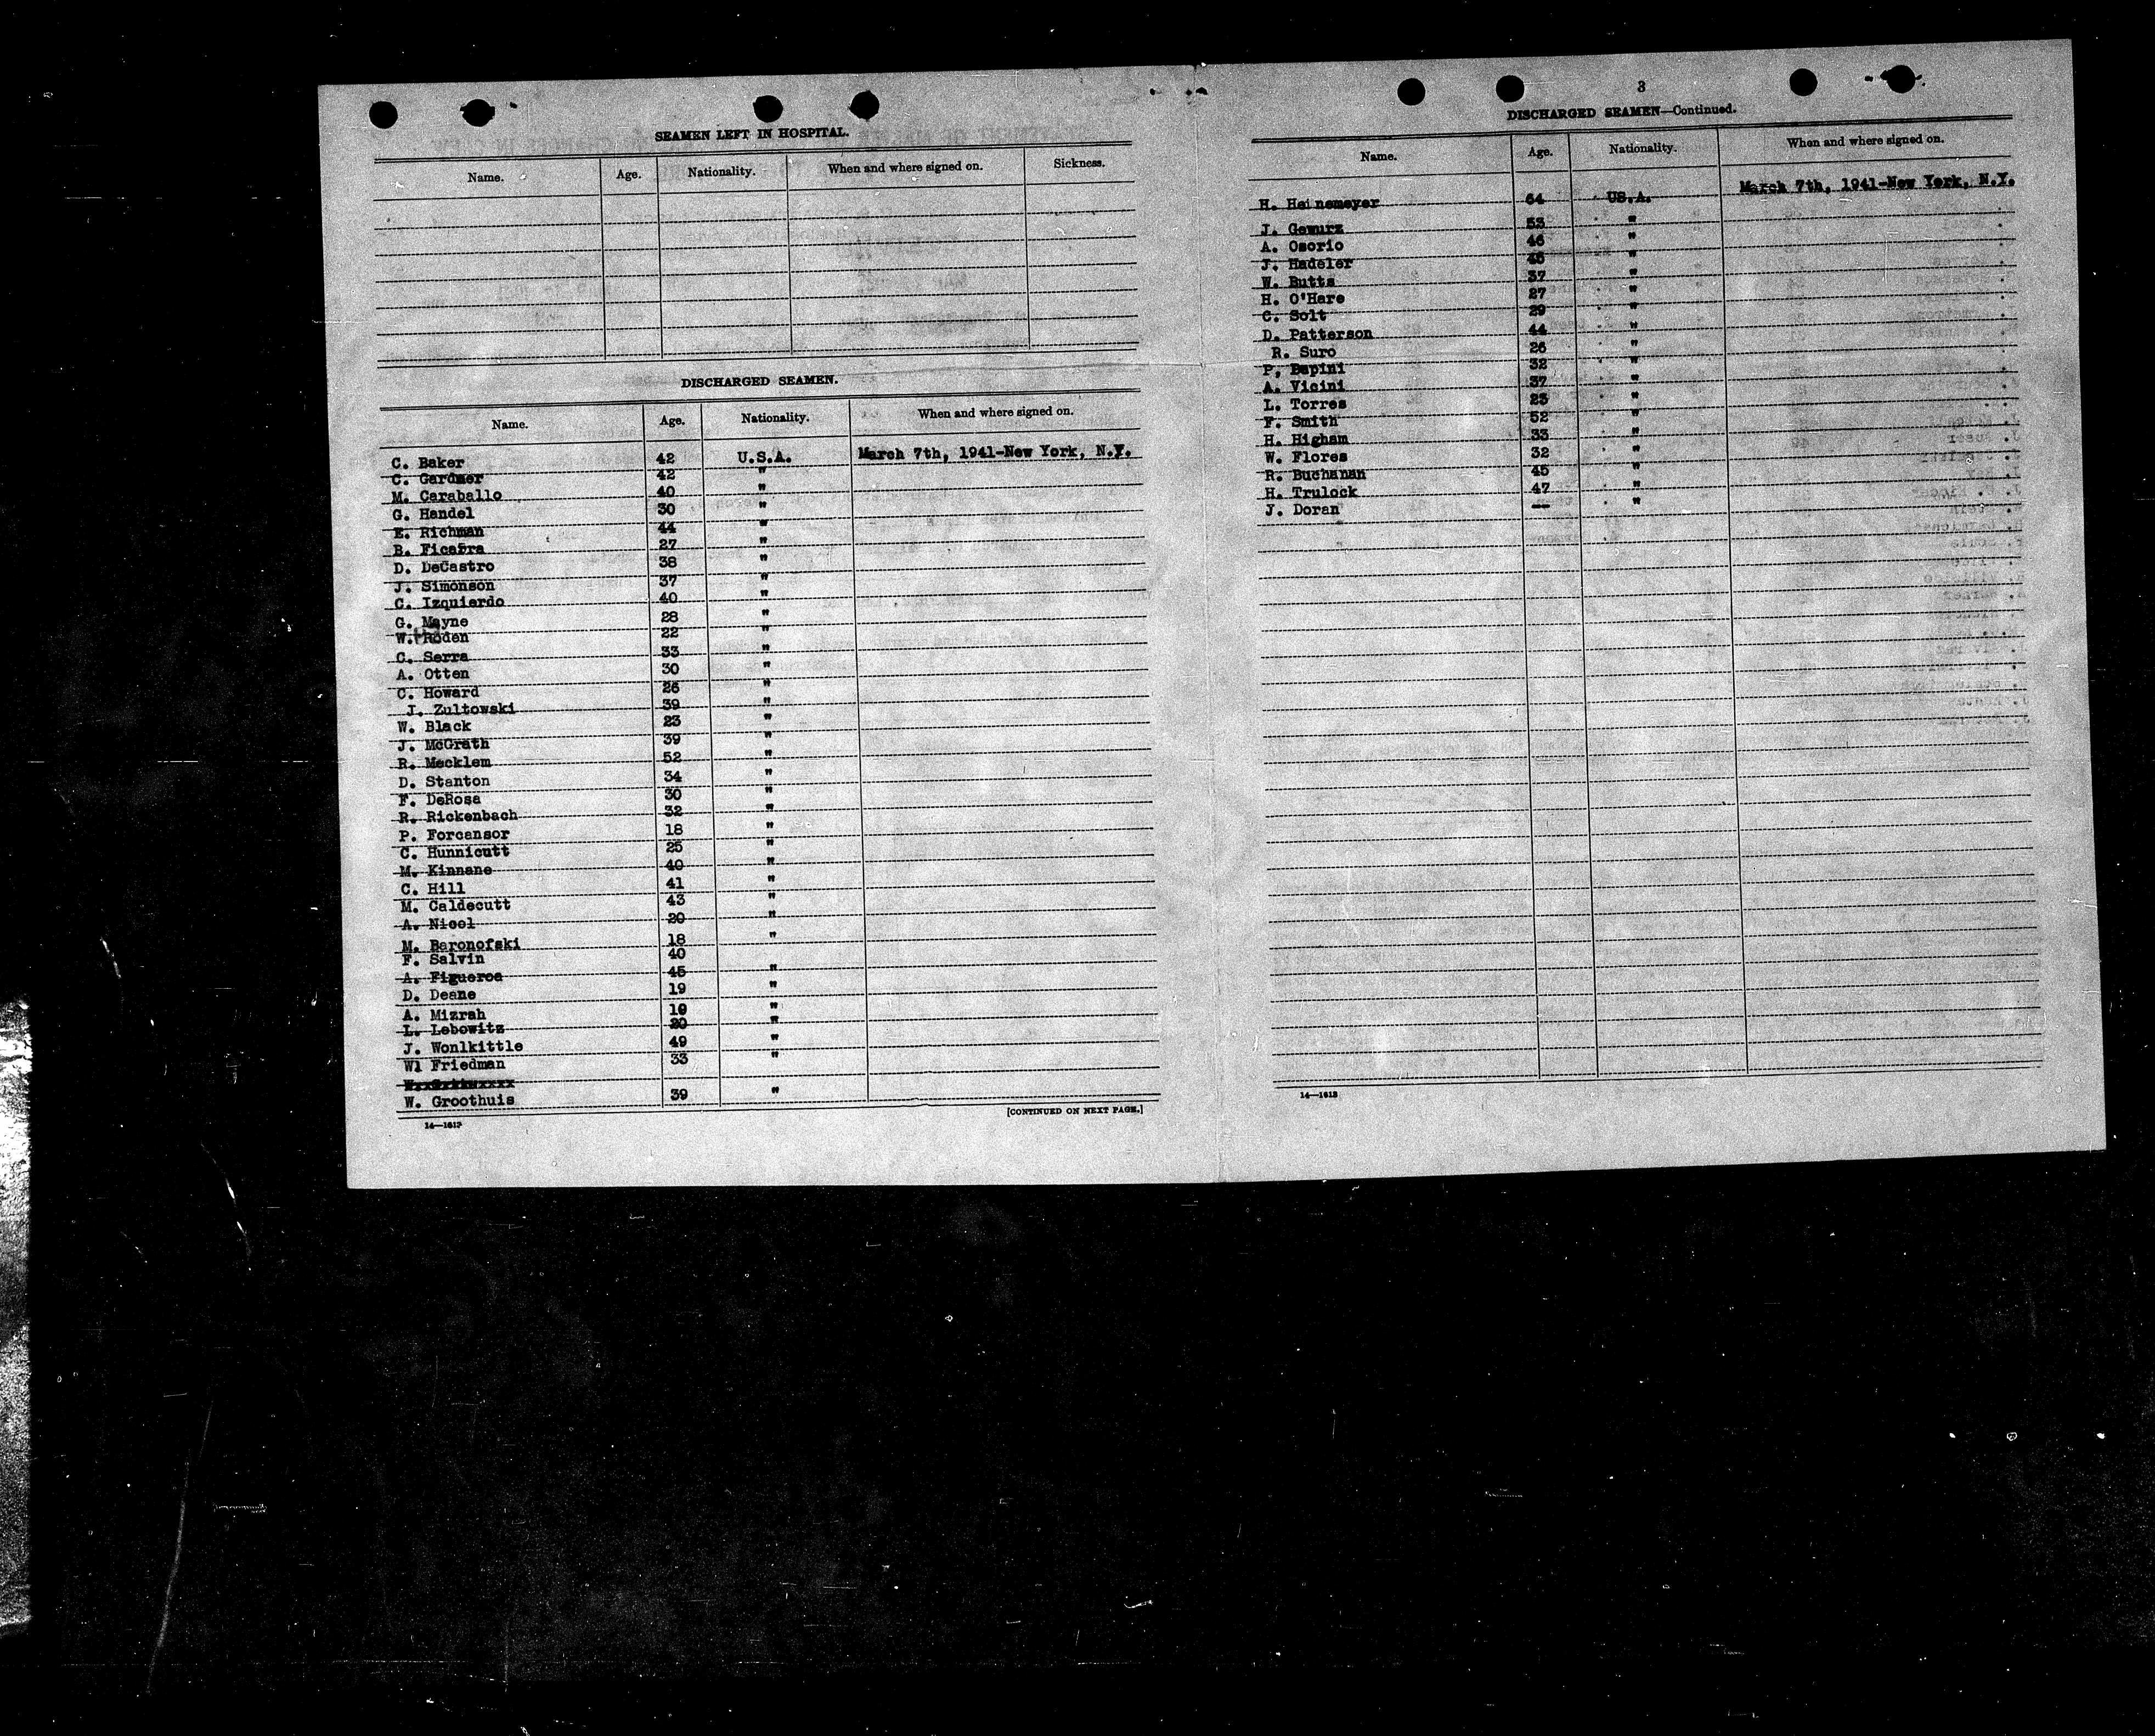 SEAMEN LEFT IN HOSPITAL.
Name. Age. Nationality. When and where signed on. Sickness.
DISCHARGED SEAMEN.
Name. Age. Nationality. When and where signed on.
C. Baker 42 U.S.A. March 7th, 1941-New York, N.Y.
C. Gardner 42 "
M. Caraballo 40 "
G. Handel 30 "
E. Richman 44 "
B. Ficafra 27 "
D. DeCastro 38 "
J. Simonson 37 "
C. Izquierdo 40 "
G. Mayne 28 "
W. Roden 22 "
C. Serra 33 "
A. Otten 30 "
C. Howard 26 "
J. Zultowski 39 "
W. Black 23 "
J. McGrath 39 "
R. Mecklem 52 "
D. Stanton 34 "
F. DeRosa 30 "
R. Rickenbach 32 "
P. Forcansor 18 "
C. Hunnicutt 25 "
M. Kinnane 40 "
C. Hill 41 "
M. Caldecutt 43 "
A. Nicol 20 "
M. Baronofski 18 "
F. Salvin 40
A. Figueroa 45 "
D. Deane 19 "
A. Mizrah 19 "
L. Lebowitz 20 "
J. Wonlkittle 49 "
Wl Friedman 33 "
W. Groothuis 39 "
14—1613 [CONTINUED ON NEXT PAGE.]
3
DISCHARGED SEAMEN—Continued.
Name. Age. Nationality. When and where signed on.
H. Heinemeyer 64 US.A. March 7th, 1941-New York, N.Y.
J. Gewurz 53 "
A. Osorio 46 "
J. Hadeler 45 "
W. Butts 37 "
H. O'Hare 27 "
C. Solt 29 "
D. Patterson 44 "
R. Suro 26 "
P, Bapini 32 "
A. Vicini 37 "
L. Torres 23 "
F. Smith 52 "
H. Higham 33 "
W. Flores 32 "
R. Buchanan 45 "
H. Trulock 47 "
J. Doran -- "
14—1613